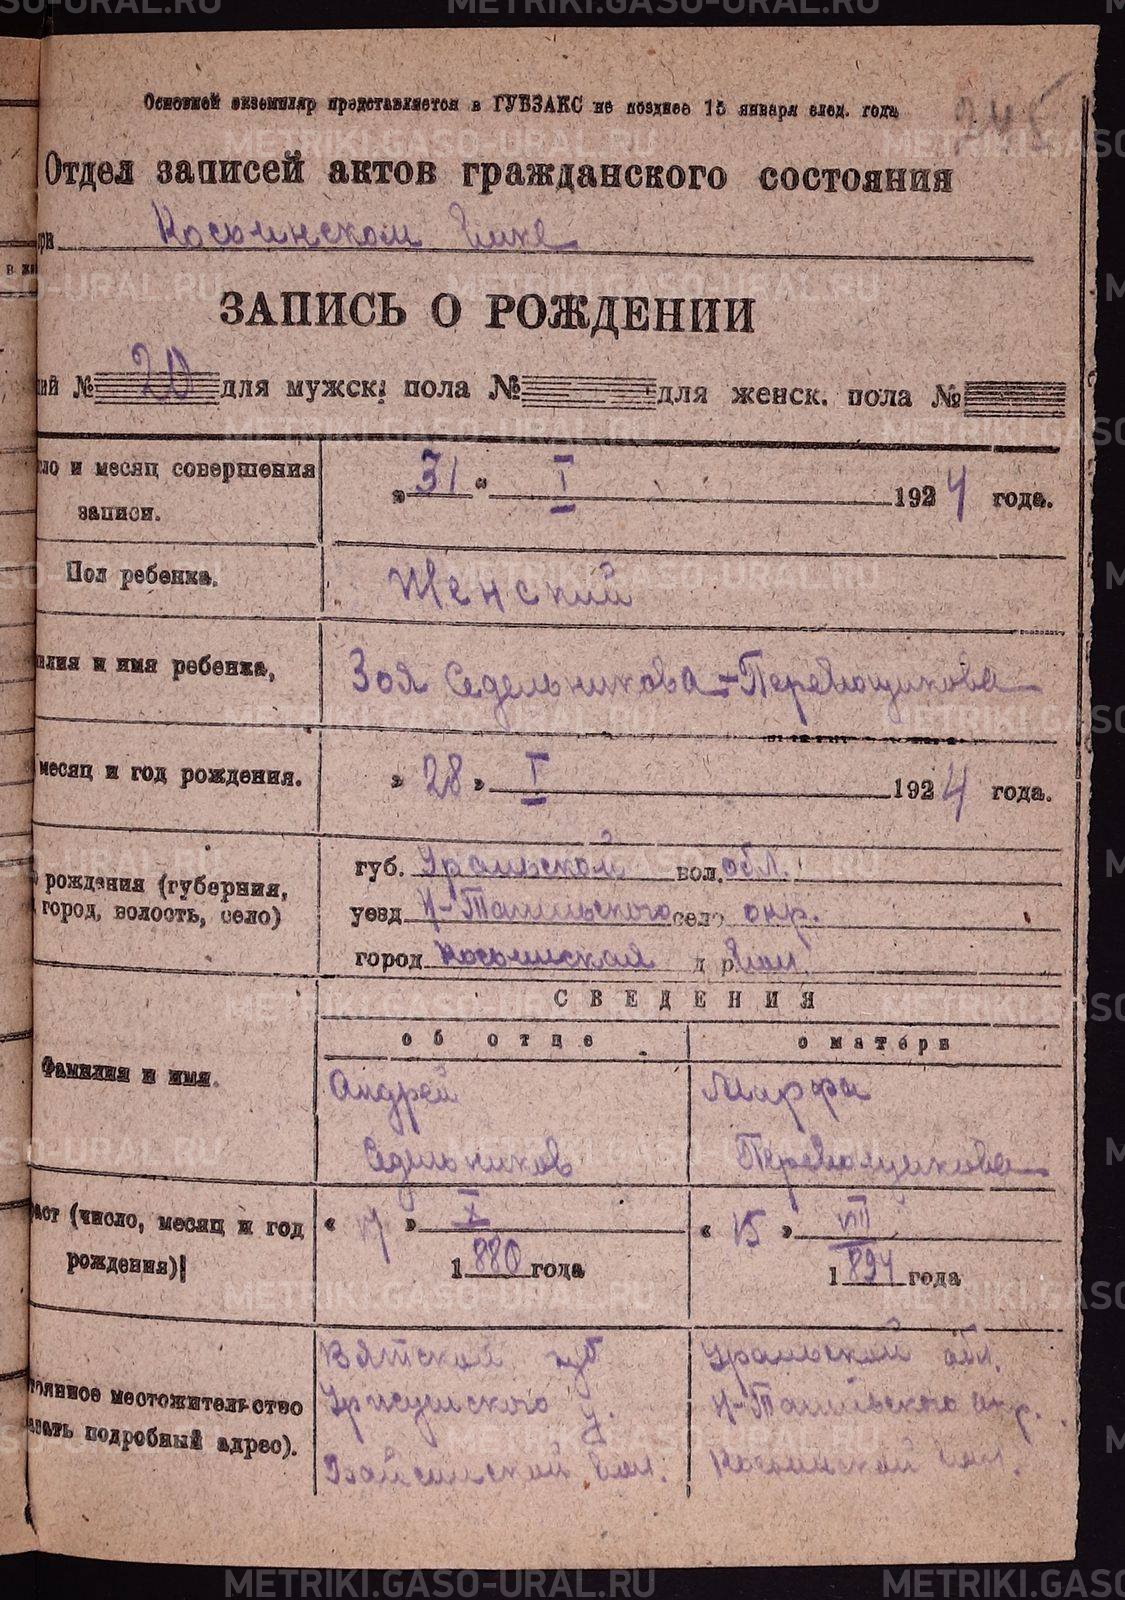 METRIKI.GASO-URAL.RU
Основной экземпляр представляется в ГУБЗАКС не позднее 15 января след. года
Отдел записей актов гражданского состояния
при Косьинском
ЗАПИСЬ О РОЖДЕНИИ
№ 20 для мужск. пола № для женск. пола №
ло и месяц совершения записи. „31“ I 1924 года.
Пол ребенка. Женский
илия и имя ребенка, Зоя Седельникова-Перевощикова
месяц и год рождения. „28„ I 1924 года.
рождения (губерния, город, волость, село)
губ. Уральской вол. обл.
уезд Н-Тагильского село окр.
город Косьинская д р вол.
СВЕДЕНИЯ
об отце о матери
Фамилия и имя. Андрей Седельников Марфа Перевощикова
аст (число, месяц и год рождения)
„17„ X 1880 года
„15„ VIII 1894 года
тоянное местожительство
азать подробный адрес).
Вятской губ Уральской обл.
у. Н-Тагильского окр.
вол. Косьинской вол.